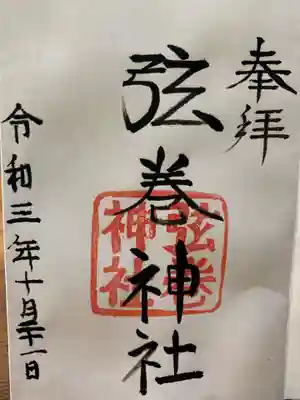 奉拝
弦巻神社
弦巻
神社
令和三年十月